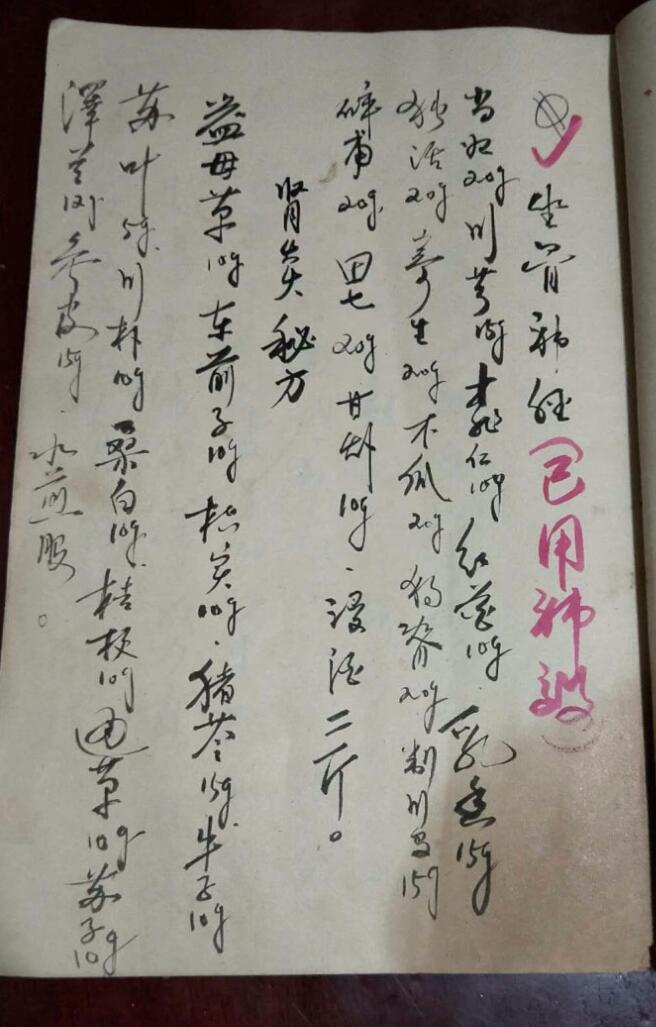 坐骨神经（已用神效）
当归20g 川芎15g 桃仁10g 红花10g 乳香15g
独活20g 寄生20g 木瓜20g 狗脊20g 制川乌15g
碎甫20g 田七20g 甘草10g、浸酒二斤。
肾炎秘方
益母草10g 车前子10g 枳实10g、猪苓15g 牛子10g
苏叶5g 川朴10g 桑白10g 桔梗10g 通草10g 苏子10g
澤兰10g 苓皮15g 水煎服。